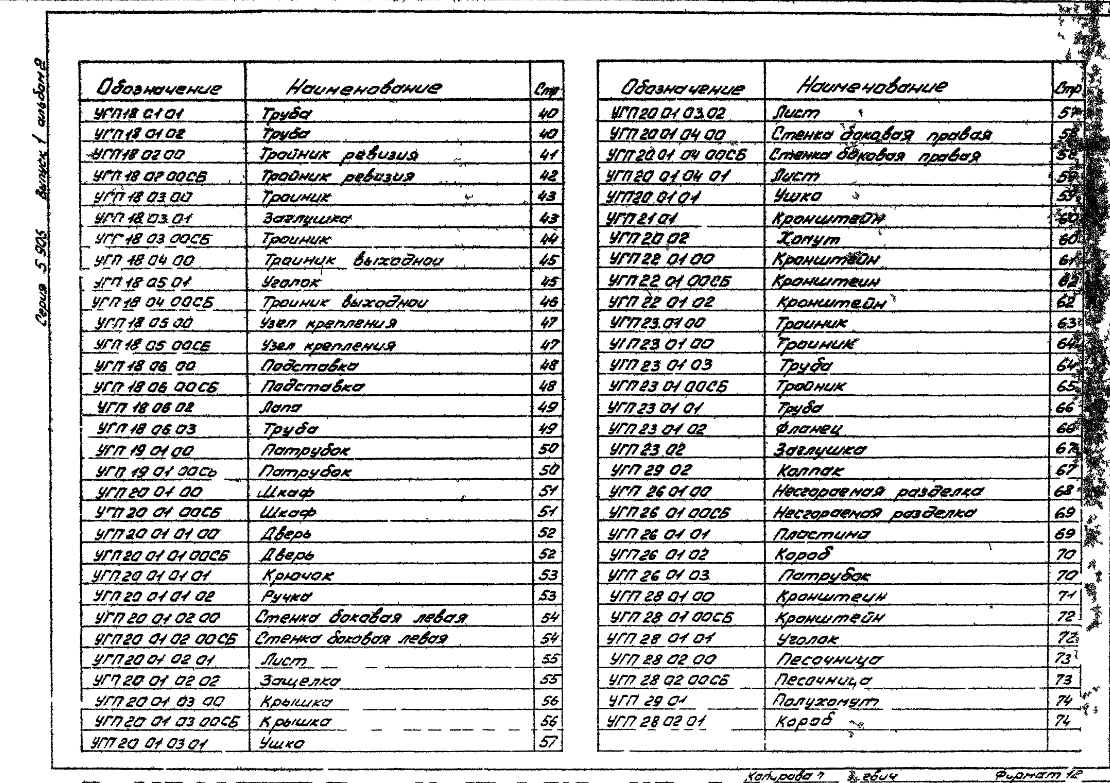 Серия 5 905 выпуск 1 альбом 2
Обозначение Наименование Стр
УГП18 01 01 Труба 40
УГП18 01 02 Труба 40
УГП18 02 00 Тройник ревизия 41
УГП 18 02 00СБ Тройник ревизия 42
УГП 18 03 00 Тройник 43
УГП 18.03.01 Заглушка 43
УГП 18 03 00СБ Тройник 44
УГП 18 04 00 Тройник выходной 45
УГП 18 05 01 Уголок 45
УГП 18 04 00СБ Тройник выходной 46
УГП 18 05 00 Узел крепления 47
УГП 18 05 00СБ Узел крепления 47
УГП 18 06 00 Подставка 48
УГП 18 06 00СБ Подставка 48
УГП 18 06 02 Лапа 49
УГП 18 06 03 Труба 49
УГП 19 01 00 Патрубок 50
УГП 19 01 00СБ Патрубок 50
УГП 20 01 00 Шкаф 51
УГП 20 01 00СБ Шкаф 51
УГП 20 01 01 00 Дверь 52
УГП 20 01 01 00СБ Дверь 52
УГП 20 01 01 01 Крючок 53
УГП 20 01 01 02 Ручка 53
УГП 20 01 02 00 Стенка боковая левая 54
УГП 20 01 02 00СБ Стенка боковая левая 54
УГП 20 01 02 01 Лист 55
УГП 20 01 02 02 Защелка 55
УГП 20 01 03 00 Крышка 56
УГП 20 01 03 00СБ Крышка 56
УГП 20 01 03 01 Ушко 57
Обозначение Наименование Стр
УГП 20 01 03.02 Лист 57
УГП 20 01 04 00 Стенка боковая правая 58
УГП 20.01 04 00СБ Стенка боковая правая 58
УГП 20 01 04 01 Лист 59
УГП20 01 01 Ушко 59
УГП 21 01 Кронштейн 60
УГП 20 02 Хомут 60
УГП 22 01 00 Кронштейн 61
УГП 22 01 00СБ Кронштейн 62
УГП 22 01 02 Кронштейн 62
УГП 23.01 00 Тройник 63
УГП 23 01 00 Тройник 64
УГП 23 01 03 Труба 64
УГП 23 01 00СБ Тройник 65
УГП 23 01 01 Труба 66
УГП 23 01 02 Фланец 66
УГП 23 02 Заглушка 67
УГП 29 02 Колпак 67
УГП 26 01 00 Несгораемая разделка 68
УГП 26 01 00СБ Несгораемая разделка 69
УГП 26 01 01 Пластина 69
УГП 26 01 02 Короб 70
УГП 26 01 03 Патрубок 70
УГП 28 01 00 Кронштейн 71
УГП 28 01 00СБ Кронштейн 72
УГП 28 01 01 Уголок 72
УГП 28 02 00 Песочница 73
УГП 28 02 00СБ Песочница 73
УГП 29 01 Полухомут 74
УГП 28 02 01 Короб 74
Копировал Формат 12